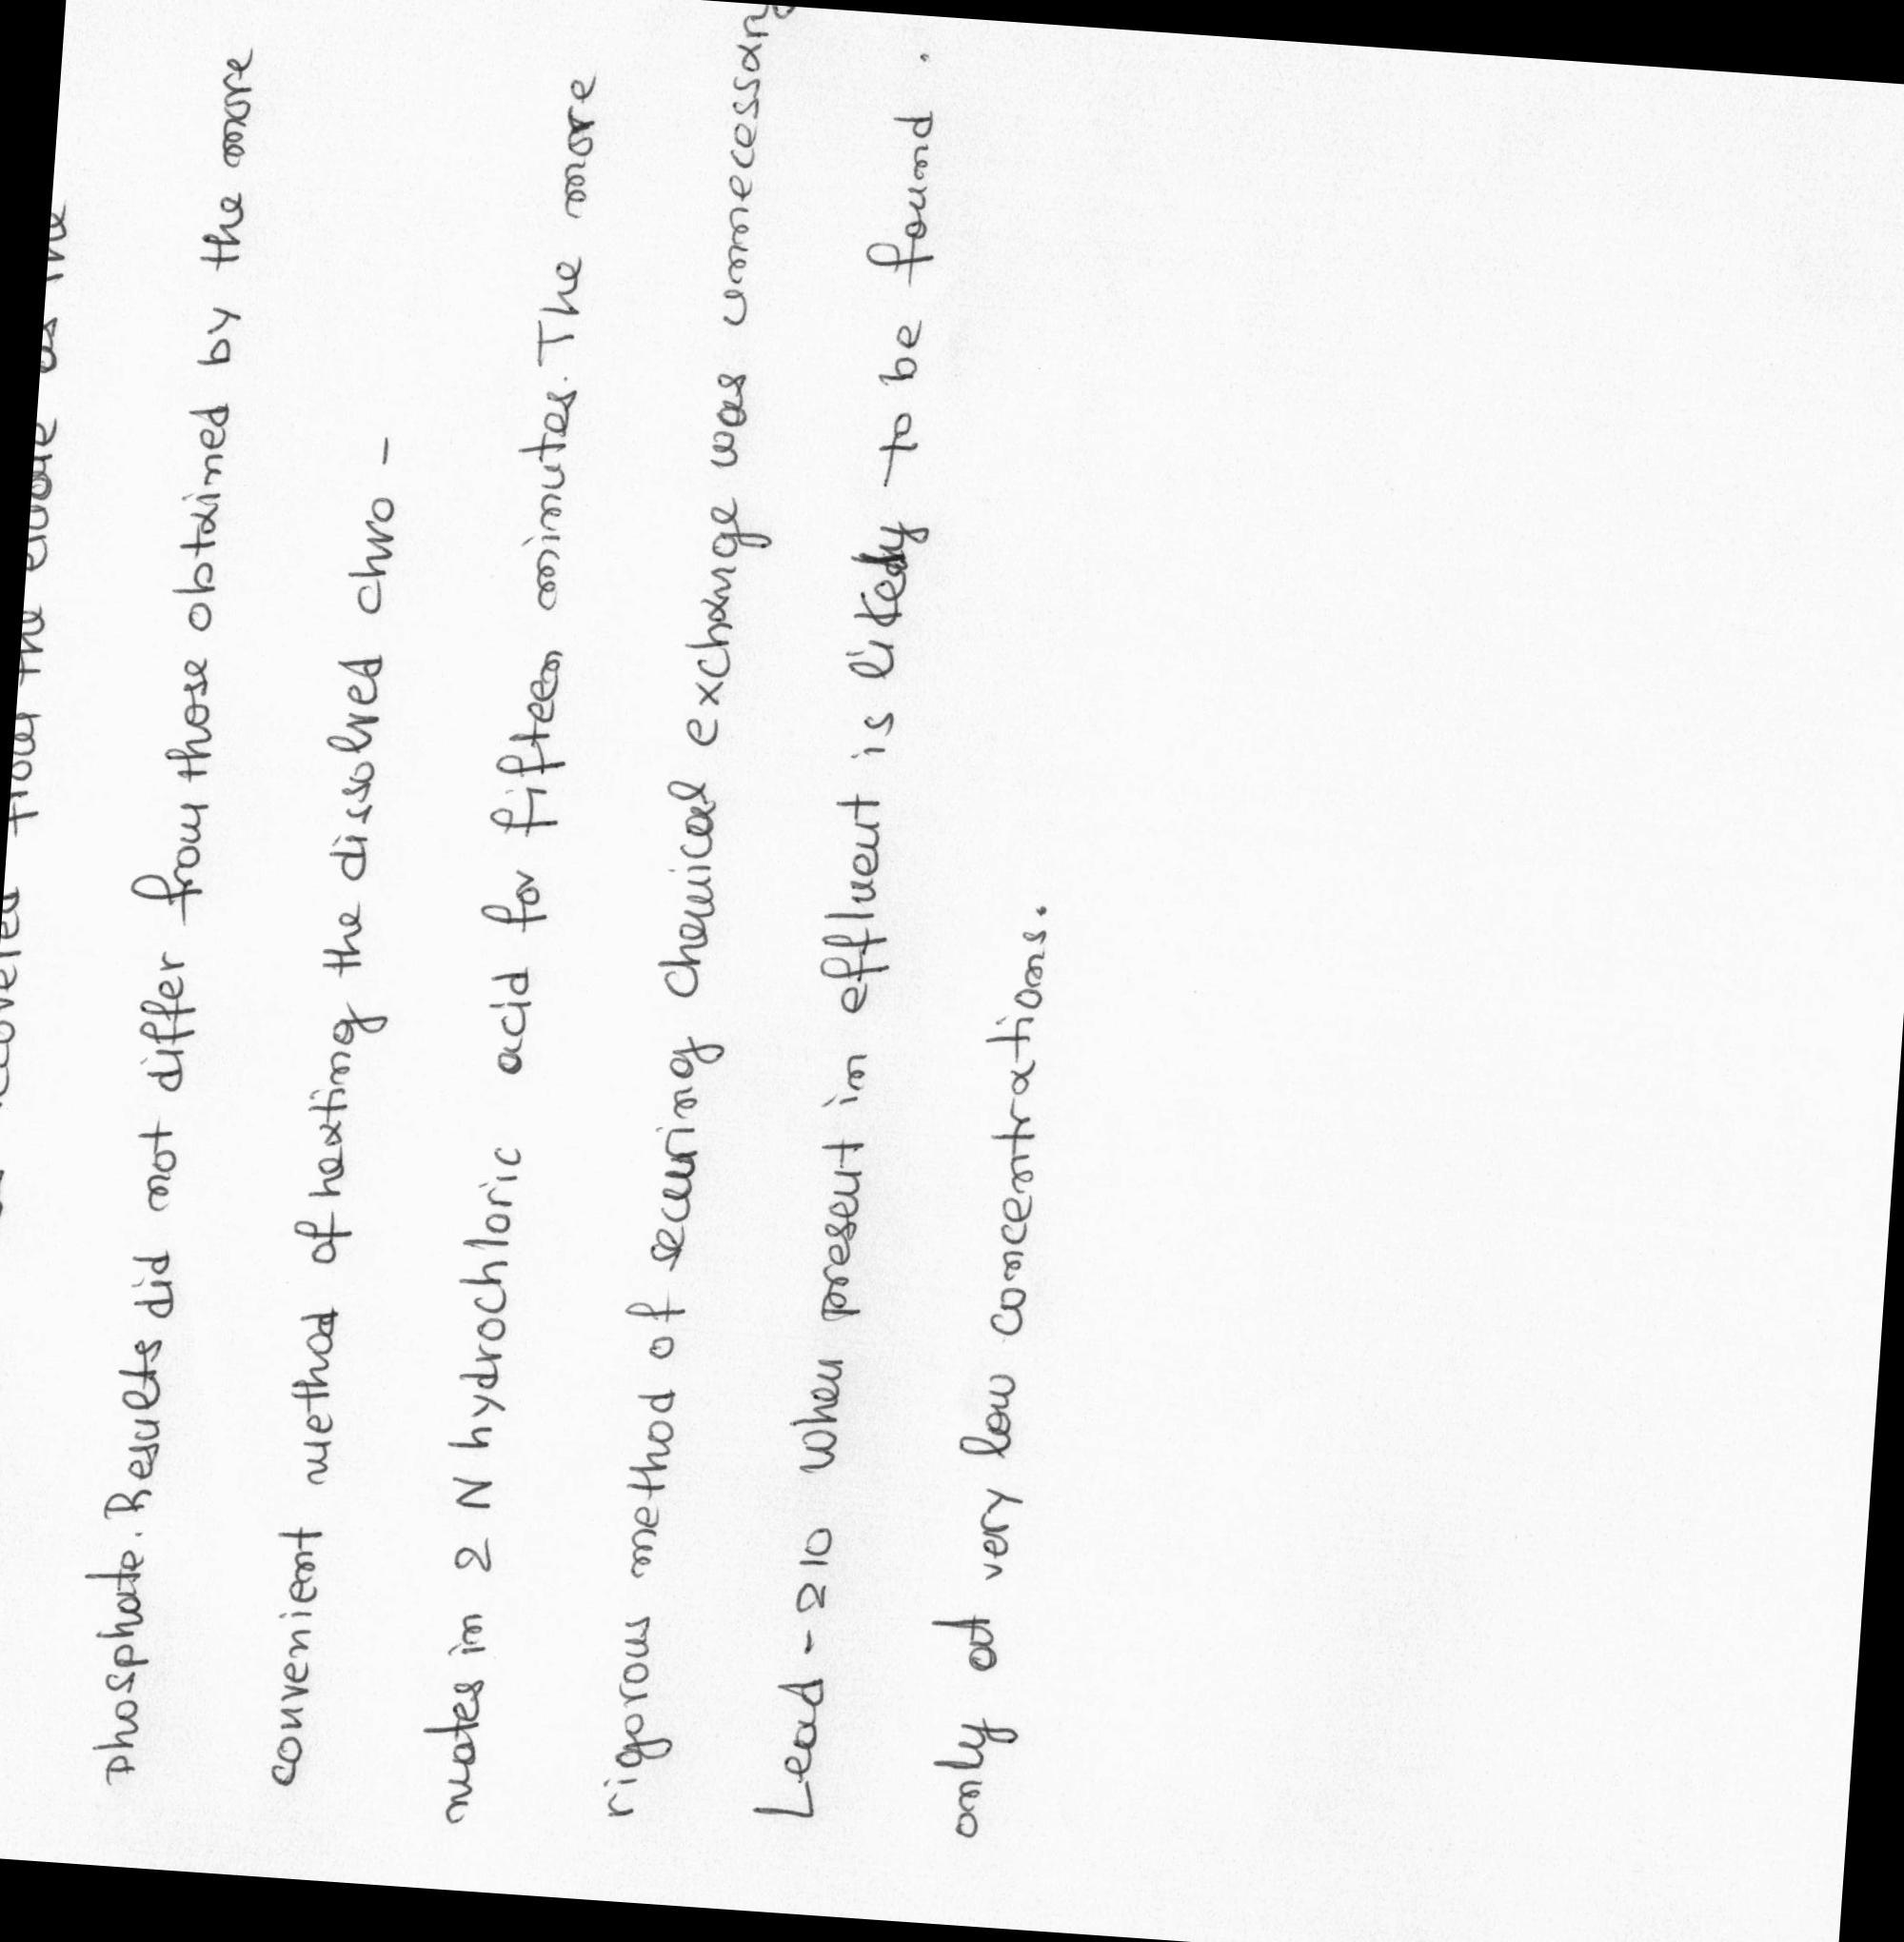 recovered from the eluate as the
phosphate. Results did not differ from those obtained by the more
convenient method of heating the dissolved chro -
mates in 2 N hydrochloric acid for fifteen minutes. The more
rigorous method of securing chemical exchange was unnecessary
Lead - 210 when present in effluent is likely to be found .
only at very low concentrations.